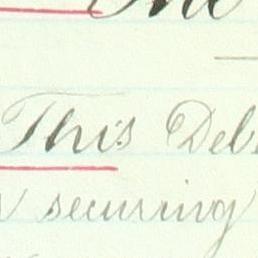 This Deb
securing